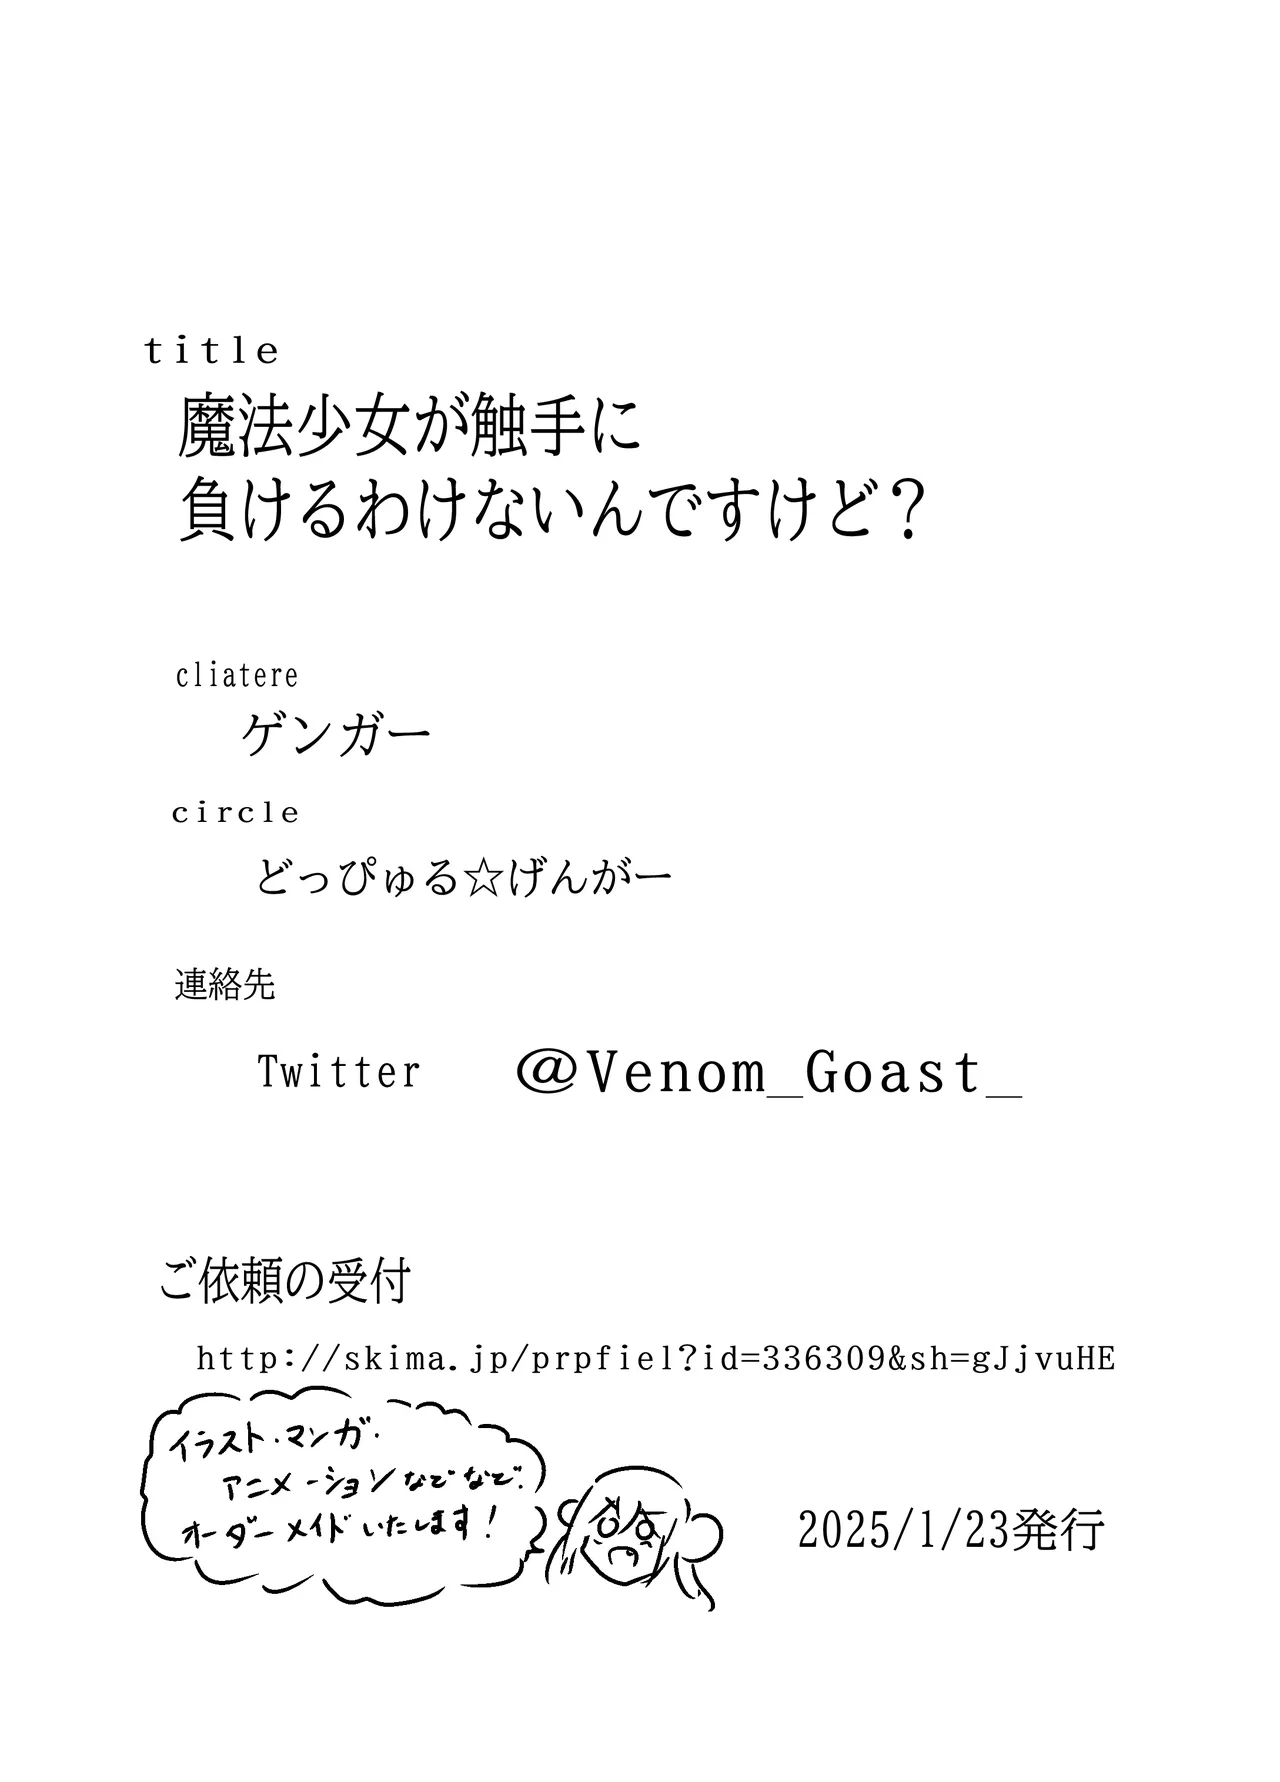 title
魔法少女が触手に
負けるわけないんですけど？
cliatere
ゲンガー
circle
どっぴゅる☆げんがー
連絡先
Twitter @Venom_Goast_
ご依頼の受付
http://skima.jp/prpfiel?id=336309&sh=gJjvuHE
イラスト・マンガ・
アニメーションなどなど、
オーダーメイドいたします！
2025/1/23発行